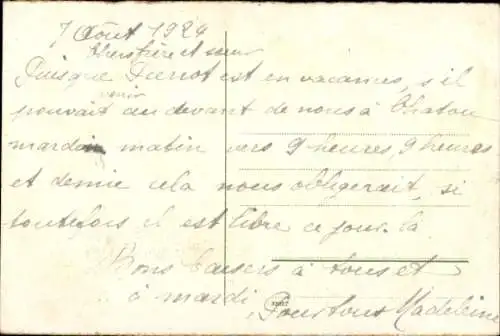 7 Août 1924
Chers frère et sœur
Puisque Pierrot est en vacances, s'il
venir
pouvait au devant de nous à Chatou
mardi matin vers 9 heures, 9 heures
et demie cela nous obligerait, si
toutefois il est libre ce jour-là
Bons baisers à tous et
à mardi,
Pour tous Madeleine